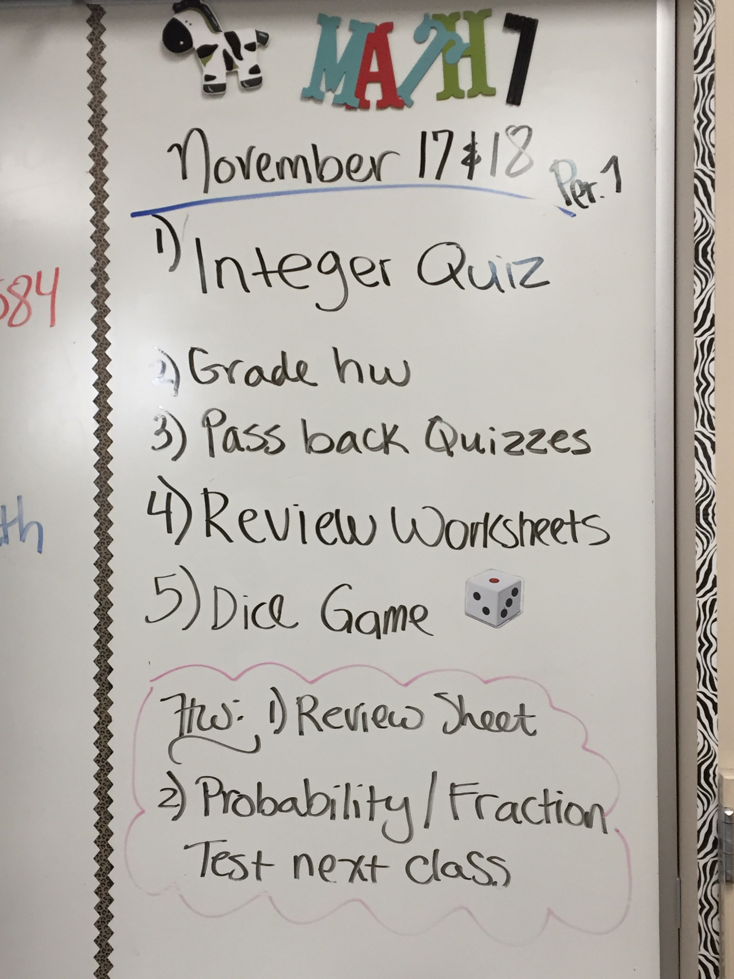 MATH 7
November 17 & 18
Per. 1
1) Integer Quiz
2) Grade hw
3) Pass back Quizzes
4) Review Worksheets
5) Dice Game
Hw: 1) Review Sheet
2) Probability/Fraction
Test next class
584
th